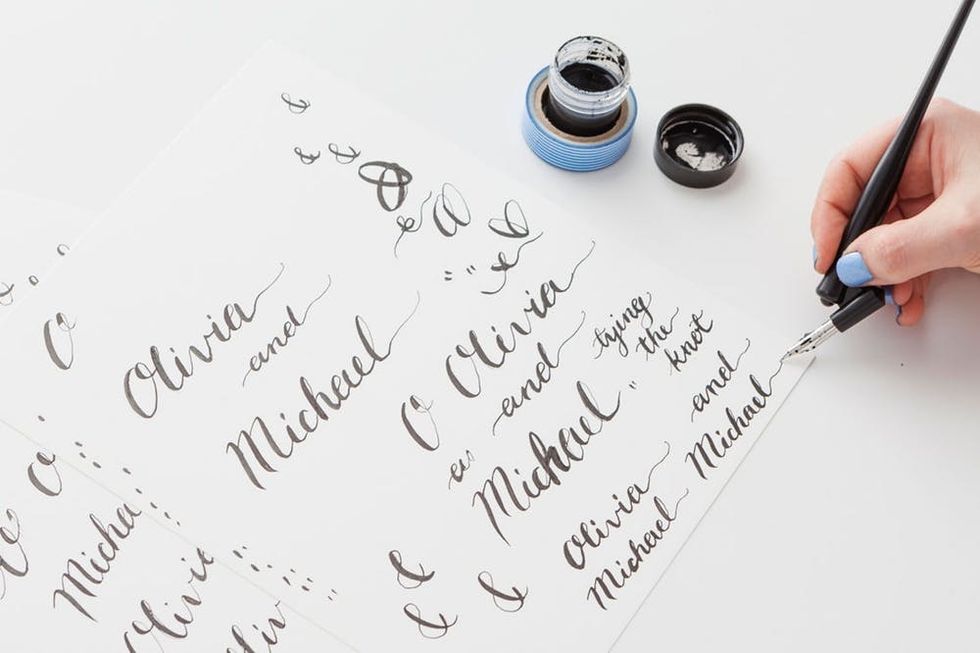 &
& &
&
&
O
Olivia
and
Michael
O
Olivia
and
Michael
"tying
the
knot
"
and
Michael
Olivia
Michael
&
&
&
O
Micha
Olivie
liv